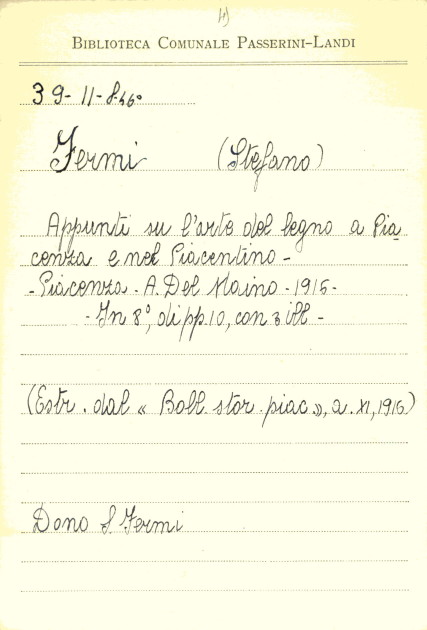 4)
BIBLIOTECA COMUNALE PASSERINI-LANDI
39-11-8.46°
Fermi (Stefano)
Appunti su l'arte del legno a Pia
cenza e nel Piacentino -
- Piacenza - A. Del Maino - 1916 -
- In 8°, di pp. 10, con 3 ill -
(Estr. dal « Boll. stor. piac », a. XI, 1916)
Dono S. Fermi